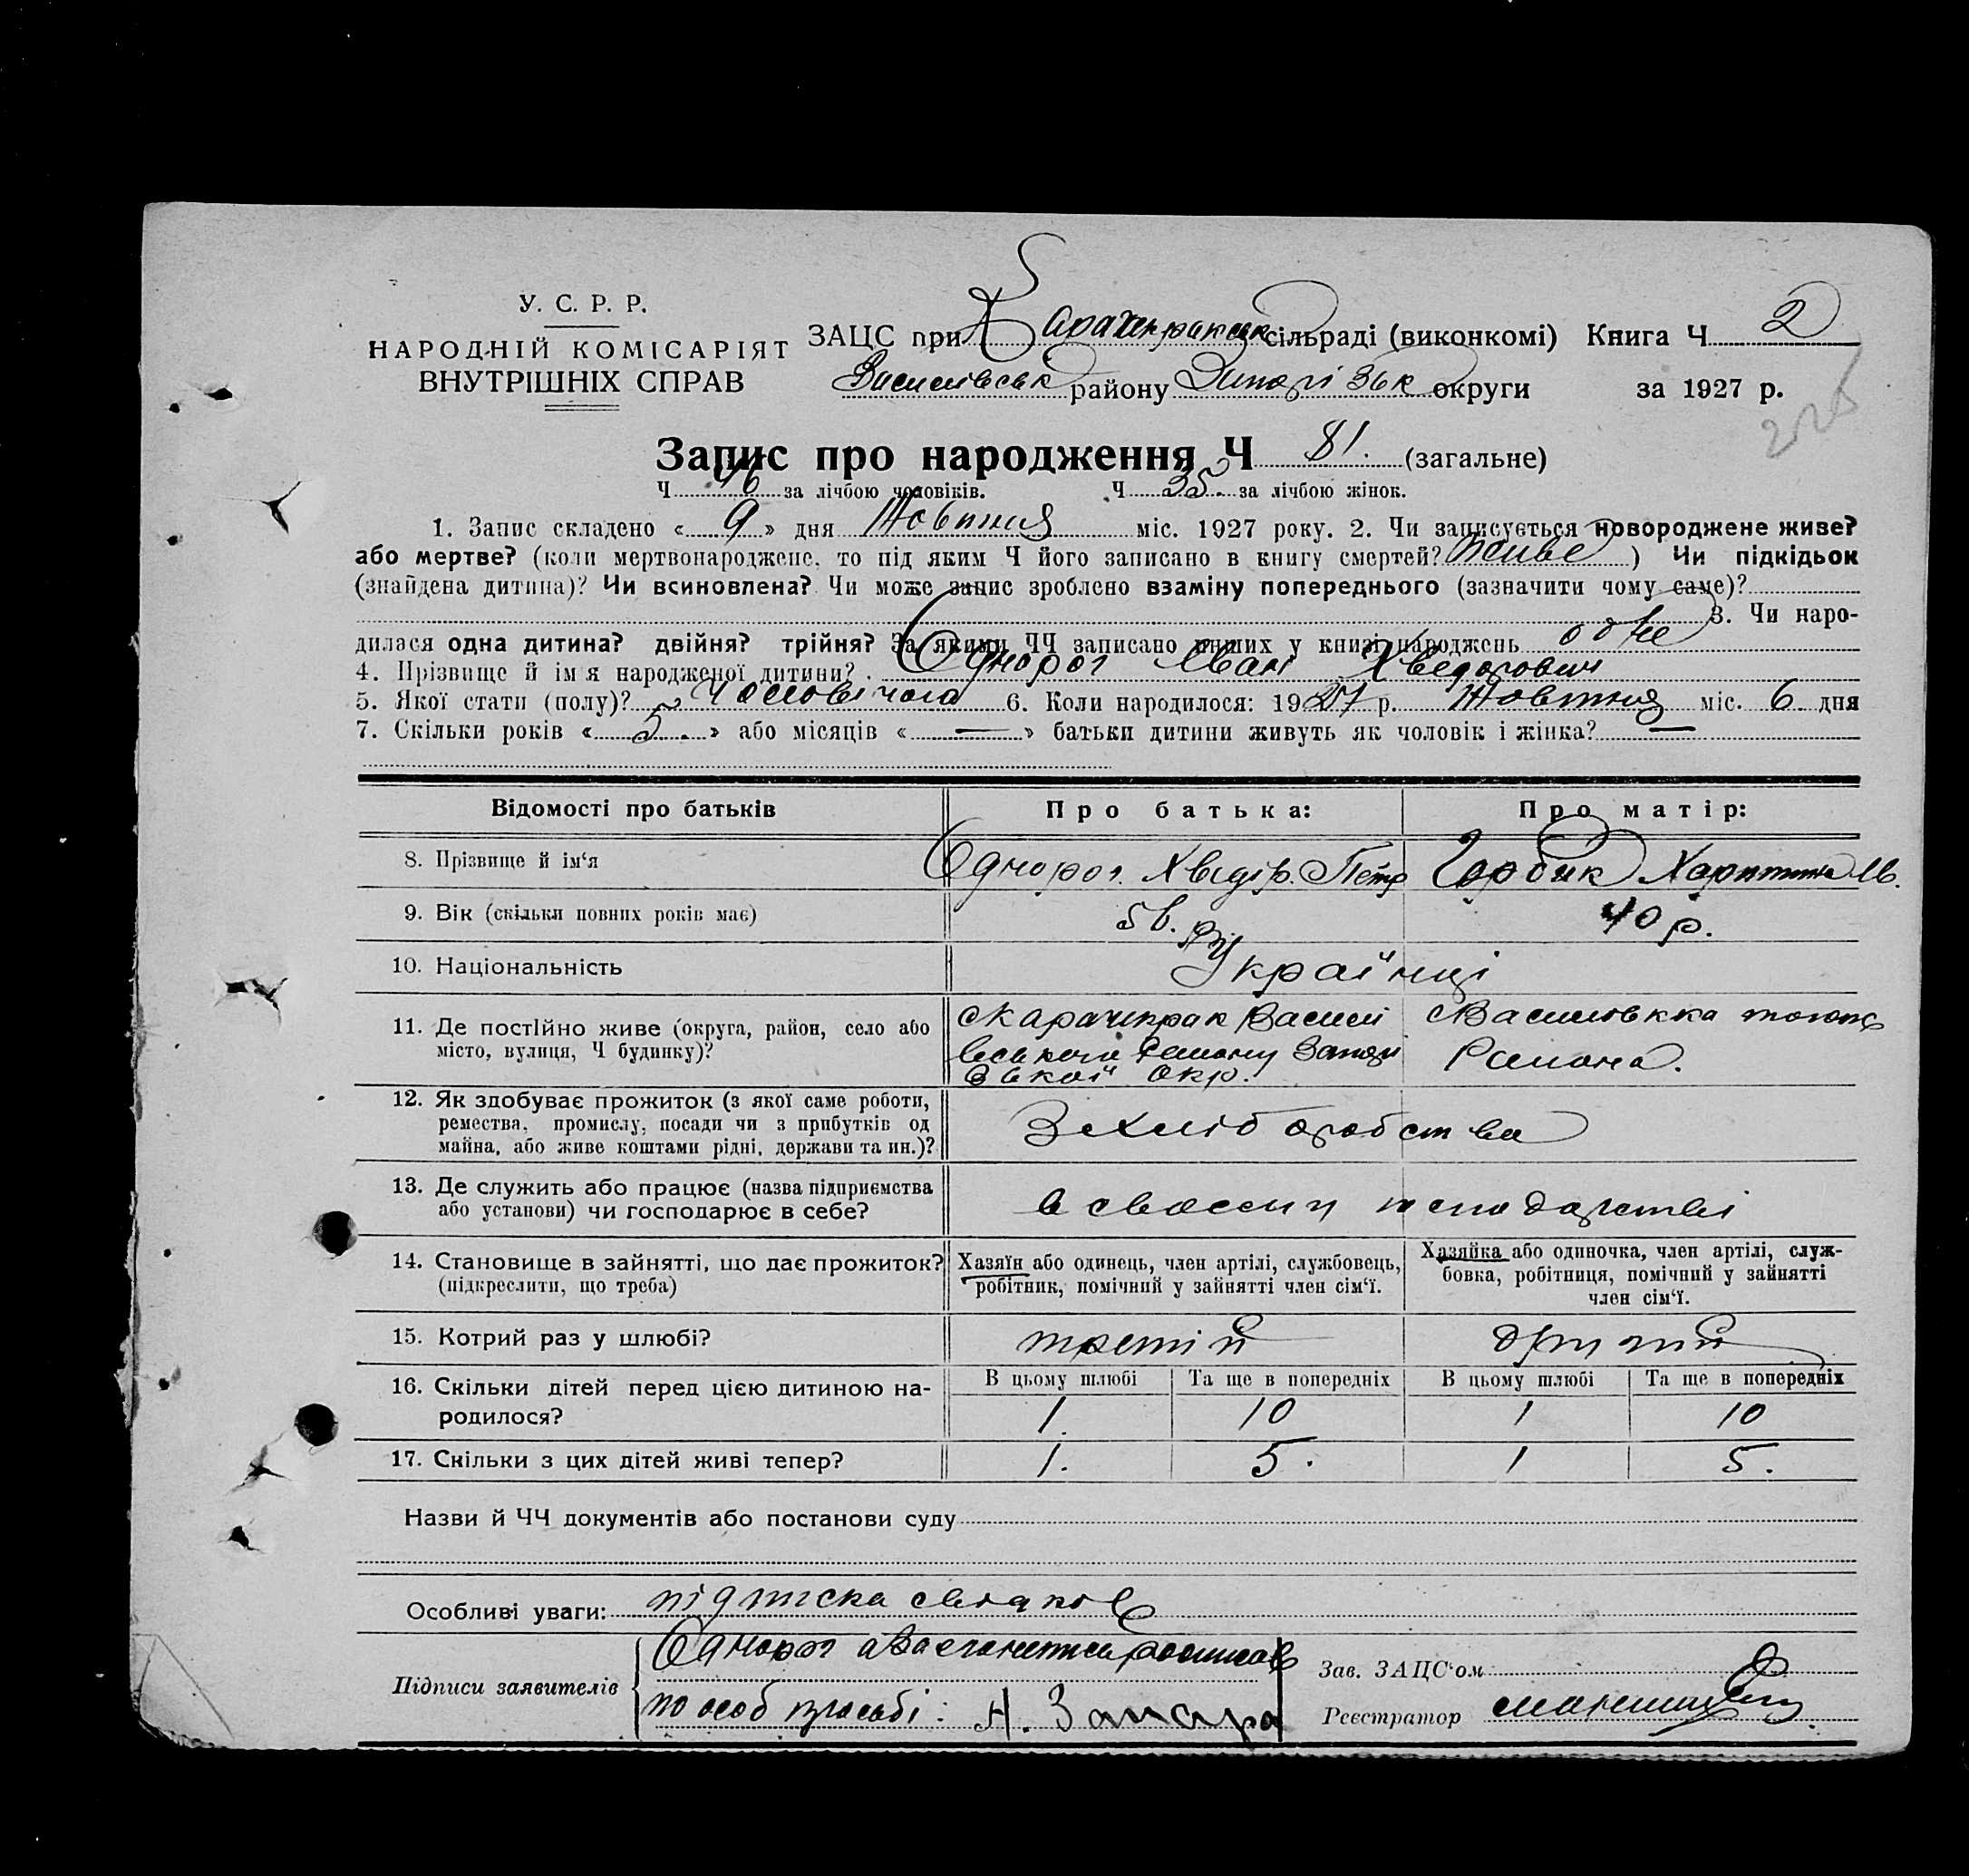 У. С. Р. Р.
НАРОДНІЙ КОМІСАРІЯТ
ВНУТРІШНІХ СПРАВ
ЗАЦС при сільраді (виконкомі) Книга Ч 2
Василівськ району округи за 1927 р.
Запис про народження Ч 81. (загальне)
Ч 46 за лічбою чоловіків. Ч 35. за лічбою жінок.
1. Запис складено « 9 » дня Жовтня міс. 1927 року. 2. Чи записується новороджене живе?
або мертве? (коли мертвонароджене, то під яким Ч його записано в книгу смертей? живе ) Чи підкідьок
(знайдена дитина)? Чи всиновлена? Чи може запис зроблено взаміну попереднього (зазначити чому саме)?
3. Чи наро-
дилася одна дитина? двійня? трійня? За якими ЧЧ записано инших у книзі народжень одне
4. Прізвище й ім'я народженої дитини? Однорог Іван Хведорович
5. Якої стати (полу)? Чоловічого 6. Коли народилося: 1927 р. Жовтня міс. 6 дня
7. Скільки років « 5. » або місяців « — » батьки дитини живуть як чоловік і жінка? —
Відомості про батьків Про батька: Про матір:
8. Прізвище й ім'я Однорог. Хведір. Петр Горбик Харитина М.
9. Вік (скільки повних років має) 40 р.
10. Національність Українці
11. Де постійно живе (округа, район, село або
місто, вулиця, Ч будинку)?
с Карачикрак Василі
вського Району Запорі
зької Окр.
с Василовкка
Района.
12. Як здобуває прожиток (з якої саме роботи,
ремества, промислу, посади чи з прибутків од
майна, або живе коштами рідні, держави та ин.)?
З хліборобства
13. Де служить або працює (назва підприємства
або установи) чи господарює в себе?
в своєму господарстві
14. Становище в зайнятті, що дає прожиток?
(підкреслити, що треба)
Хазяїн або одинець, член артілі, службовець,
робітник, помічний у зайнятті член сім'ї.
Хазяйка або одиночка, член артілі, служ-
бовка, робітниця, помічний у зайнятті
член сім'ї.
15. Котрий раз у шлюбі? третій другий
16. Скільки дітей перед цією дитиною на-
родилося?
В цьому шлюбі Та ще в попередніх В цьому шлюбі Та ще в попередніх
1. 10 1 10
17. Скільки з цих дітей живі тепер? 1. 5. 1 5.
Назви й ЧЧ документів або постанови суду
Особливі уваги: підписка свідків
Підписи заявителів
Однорог
по особ просьбі: А. Запара
Зав. ЗАЦС'ом
Реєстратор